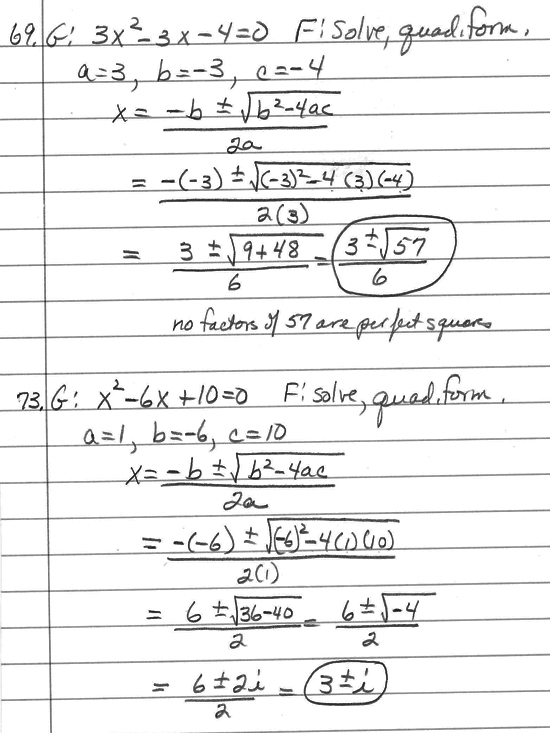 69. G: 3x²-3x-4=0 F: Solve, quad. form.
a=3, b=-3, c=-4
x = (-b ± √(b²-4ac)) / 2a
= (-(-3) ± √((-3)²-4(3)(-4))) / 2(3)
= (3 ± √(9+48)) / 6 = (3 ± √57) / 6
no factors of 57 are perfect squares
73. G: x²-6x+10=0 F: solve, quad. form.
a=1, b=-6, c=10
x = (-b ± √(b²-4ac)) / 2a
= (-(-6) ± √((-6)²-4(1)(10))) / 2(1)
= (6 ± √(36-40)) / 2 = (6 ± √-4) / 2
= (6 ± 2i) / 2 = 3 ± i